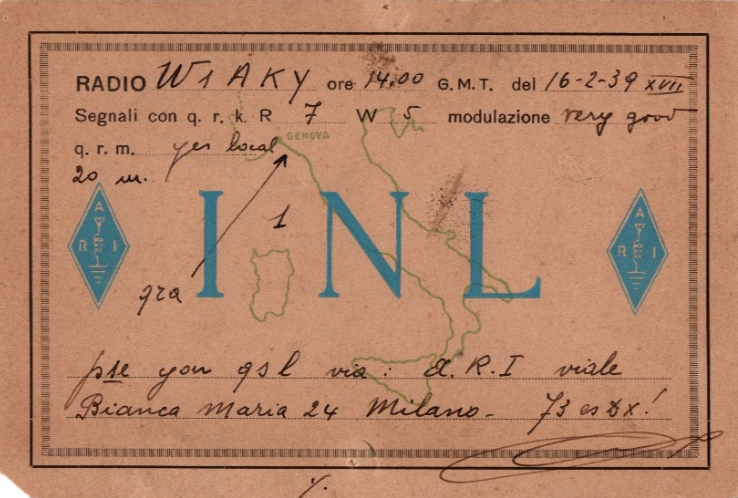 RADIO W1AKY ore 14.00 G.M.T. del 16-2-39 XVII
Segnali con q. r. k. R 7 W 5 modulazione very good
q. r. m. yes local
GENOVA
20 m.
A
R I
I 1 N L
A
R I
qra
pse your qsl via: A.R.I viale
Bianca Maria 24 Milano - 73 es Dx!